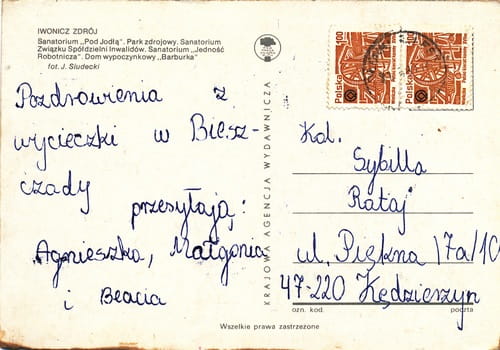 IWONICZ ZDRÓJ
Sanatorium „Pod Jodłą”. Park zdrojowy. Sanatorium
Związku Spółdzielni Inwalidów. Sanatorium „Jedność
Robotnicza”. Dom wypoczynkowy „Barburka”
fot. J. Siudecki
Pozdrowienia z
wycieczki w Biesz-
czady
przesyłają:
Agnieszka, Małgonia
i Beacia
KRAJOWA AGENCJA WYDAWNICZA
Polska
Polska
Kol.
Sybilla
Rataj
ul. Piękna 17a/10
47-220 Kędzierzyn
ozn. kod. poczta
Wszelkie prawa zastrzeżone